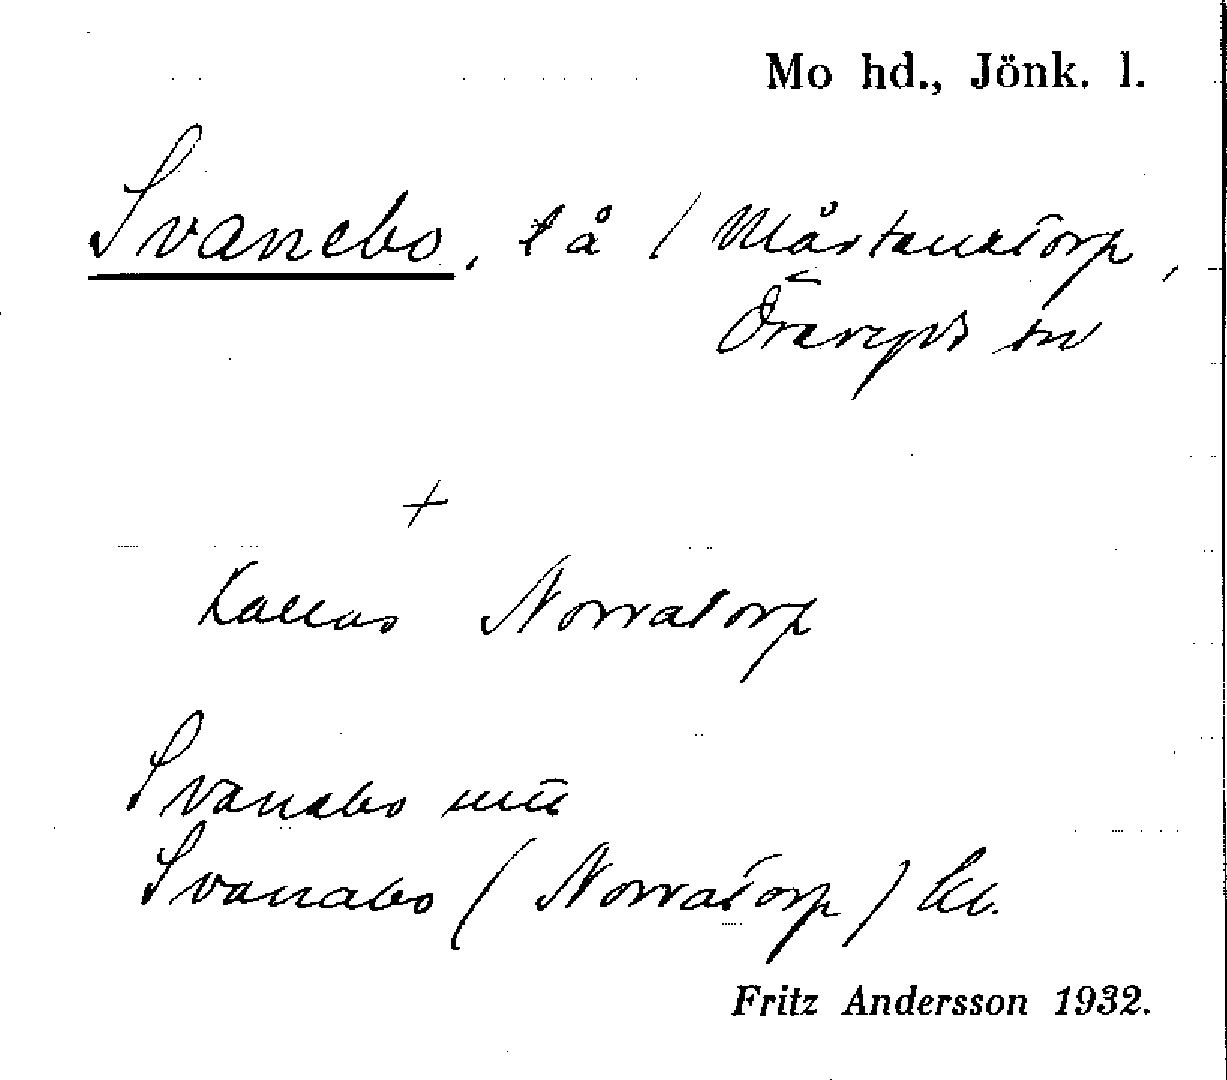 Mo hd., Jönk. l.
Svanebo, lå / Mårtenstorp,
Öreryds sn
+
Kallas Norratorp
Svanabo
Svanabo (Norratorp)
Fritz Andersson 1932.